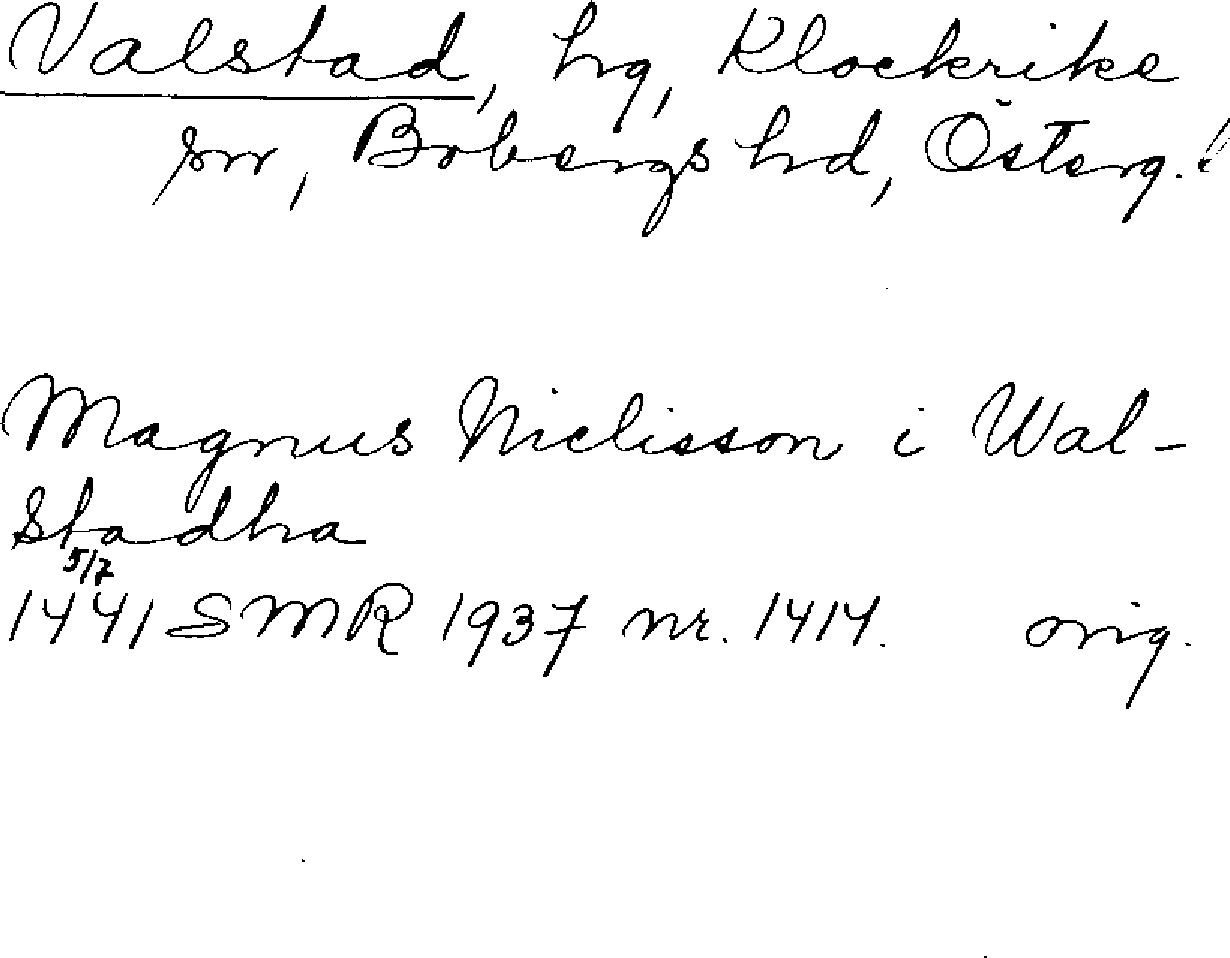 Valstad, hg, Klockrike
sn, Bobergs hd, Österg.
Magnus Nielisson i Wal-
stadha
5/7
1441 SMR 1937 nr. 1414. orig.